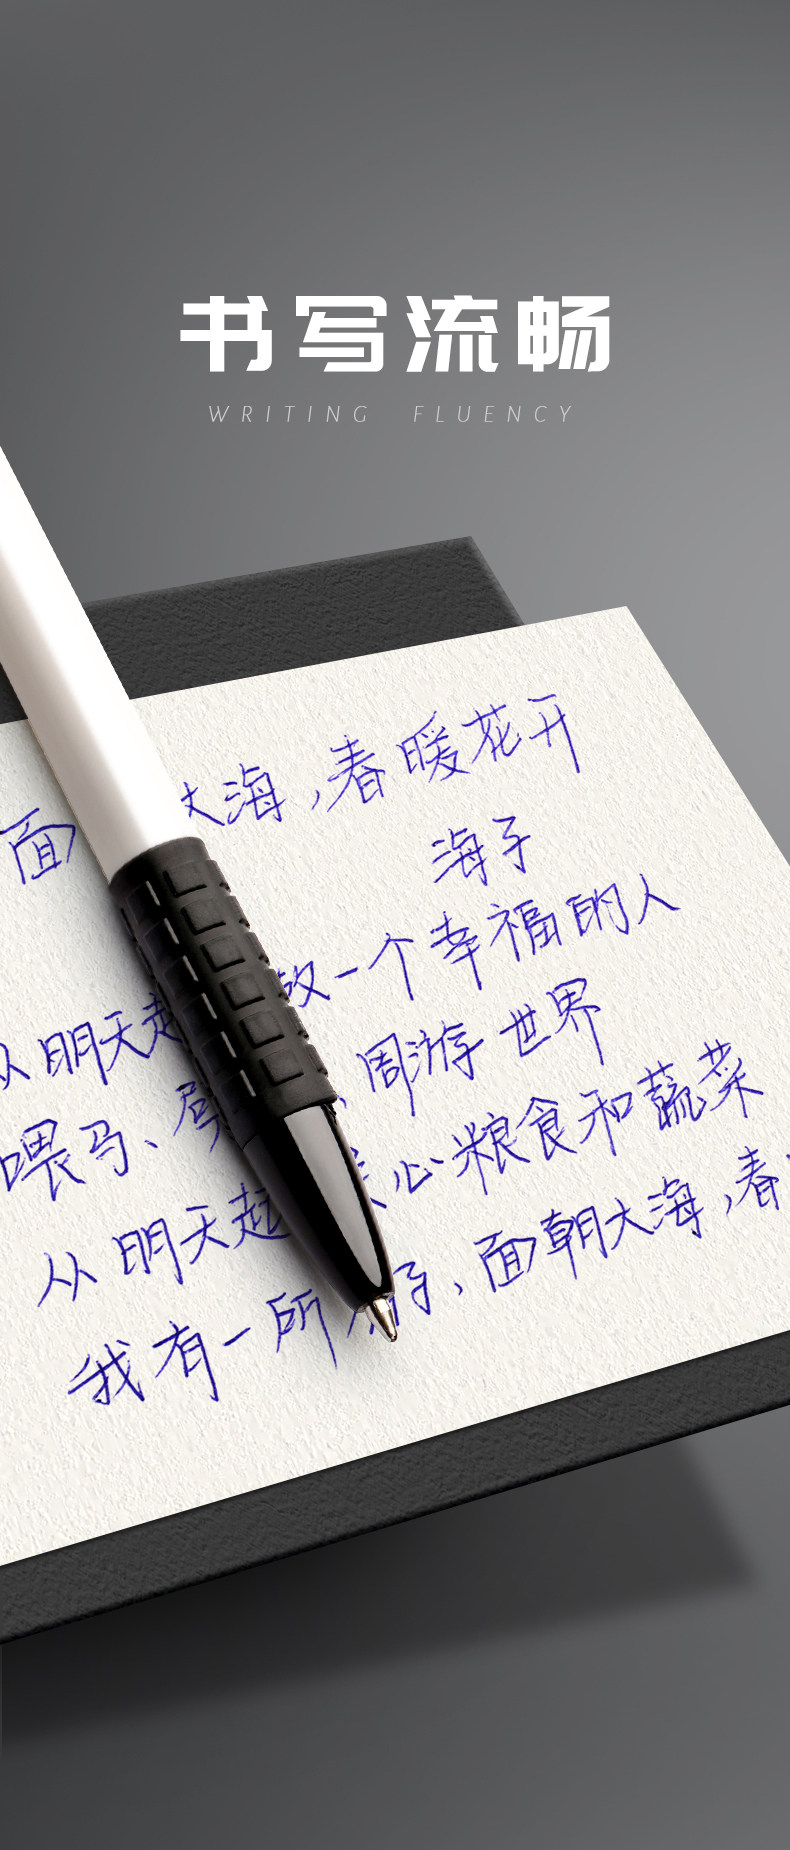 书写流畅
WRITING FLUENCY
面 大海,春暖花开
海子
从明天起 做一个幸福的人
喂马、 周游世界
从明天起 心粮食和蔬菜
我有一所 子、面朝大海,春